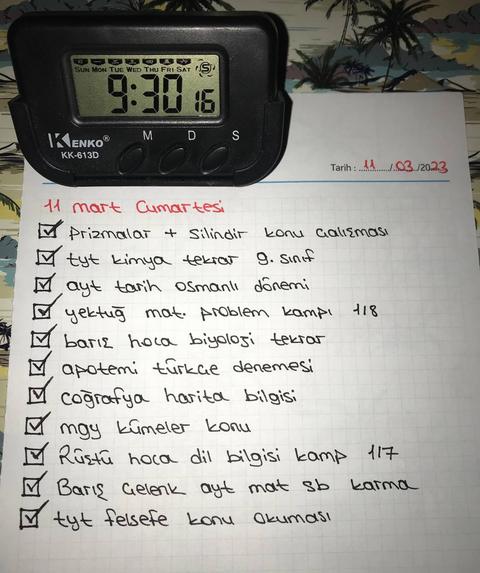 SUN MON TUE WED THU FRI SAT
9:30 16
M D S
KENKO®
KK-613D
Tarih : 11 / 03 /2023
11 mart Cumartesi
prizmalar + silindir konu çalışması
tyt kimya tekrar 9. sınıf
ayt tarih osmanlı dönemi
yektuğ mat. problem kampı 118
barış hoca biyoloji tekrar
apotemi türkçe denemesi
coğrafya harita bilgisi
mgy kümeler konu
Rüştü hoca dil bilgisi kamp 117
Barış Çelenk ayt mat sb karma
tyt felsefe konu okuması